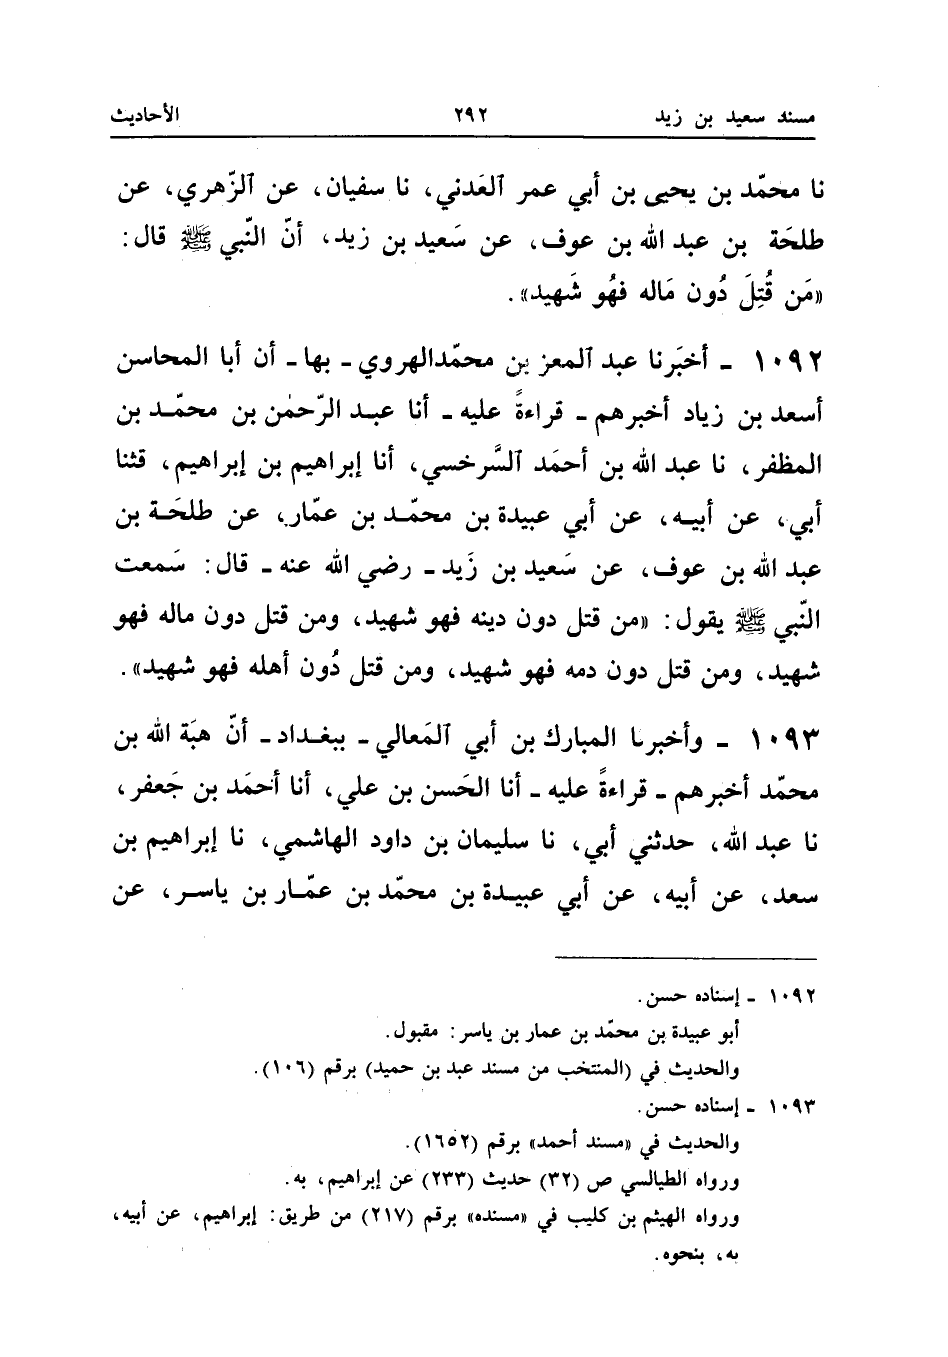 مسند سعيد بن زيد ٢٩٢ الأحاديث
نا محمّد بن يحيى بن أبي عمر العَدني، نا سفيان، عن الزّهري، عن
طلحَة بن عبد الله بن عوف، عن سَعيد بن زيد، أنّ النّبي ﷺ قال:
«مَن قُتِلَ دُون مَاله فهُو شَهيد».
١٠٩٢ - أخبَرنا عبد المعز بن محمّدالهروي - بها - أن أبا المحاسن
أسعد بن زياد أخبرهم - قراءةً عليه - أنا عبد الرّحمٰن بن محمّد بن
المظفر، نا عبد الله بن أحمَد السَّرخسي، أنا إبراهيم بن إبراهيم، قثنا
أبي، عن أبيه، عن أبي عبيدة بن محمّد بن عمّار، عن طلحَة بن
عبد الله بن عوف، عن سَعيد بن زَيد - رضي الله عنه - قال: سَمعت
النّبي ﷺ يقول: «من قتل دون دينه فهو شهيد، ومن قتل دون ماله فهو
شهيد، ومن قتل دون دمه فهو شهيد، ومن قتل دُون أهله فهو شهيد».
١٠٩٣ - وأخبرنا المبارك بن أبي المَعالي - ببغداد - أنّ هبَة الله بن
محمّد أخبرهم - قراءةً عليه - أنا الحَسن بن علي، أنا أحمَد بن جَعفر،
نا عبد الله، حدثني أبي، نا سليمان بن داود الهاشمي، نا إبراهيم بن
سعد، عن أبيه، عن أبي عبيدة بن محمّد بن عمّار بن ياسر، عن
١٠٩٢ - إسناده حسن.
أبو عبيدة بن محمّد بن عمار بن ياسر: مقبول.
والحديث في (المنتخب من مسند عبد بن حميد) برقم (١٠٦).
١٠٩٣ - إسناده حسن.
والحديث في «مسند أحمد» برقم (١٦٥٢).
ورواه الطيالسي ص (٣٢) حديث (٢٣٣) عن إبراهيم، به.
ورواه الهيثم بن كليب في «مسنده» برقم (٢١٧) من طريق: إبراهيم، عن أبيه،
به، بنحوه.